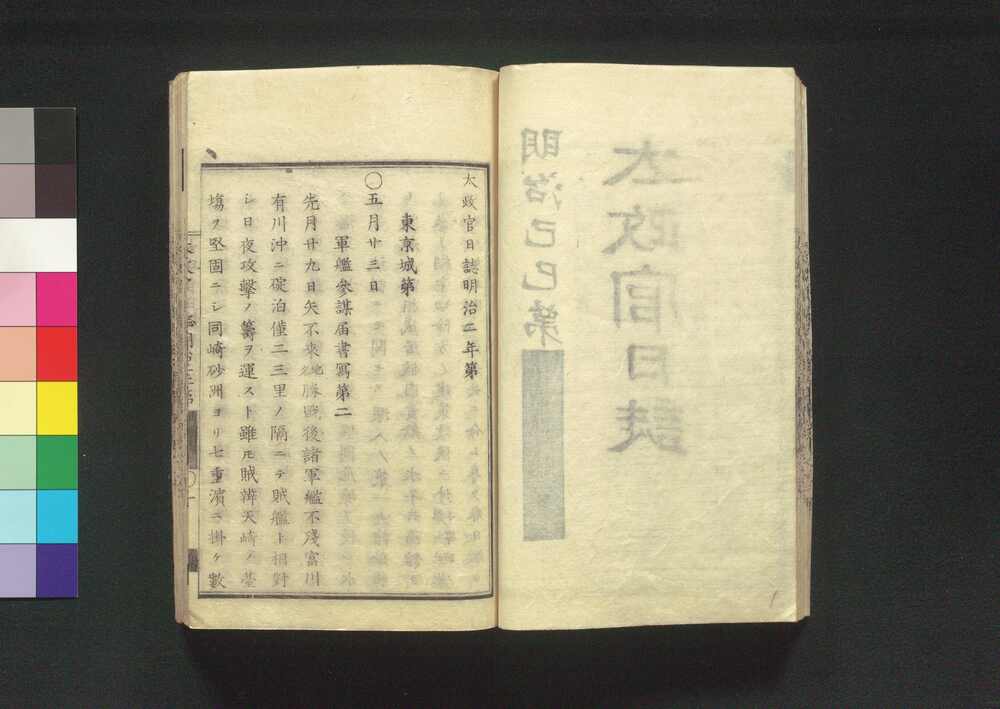 太政官日誌明治二年第
東京城第
〇五月廿三日
軍艦參謀届書寫第二
先月廿九日矢不來勝戰後諸軍艦不殘富川
有川沖ニ碇泊僅二三里ノ隔ニテ賊艦ト相對
シ日夜攻擊ノ籌ヲ運スト雖モ賊辨天崎ノ臺
塲ヲ堅固ニシ同崎砂洲ヨリ七重濱ニ掛ケ數
太政官日誌
明治己巳第